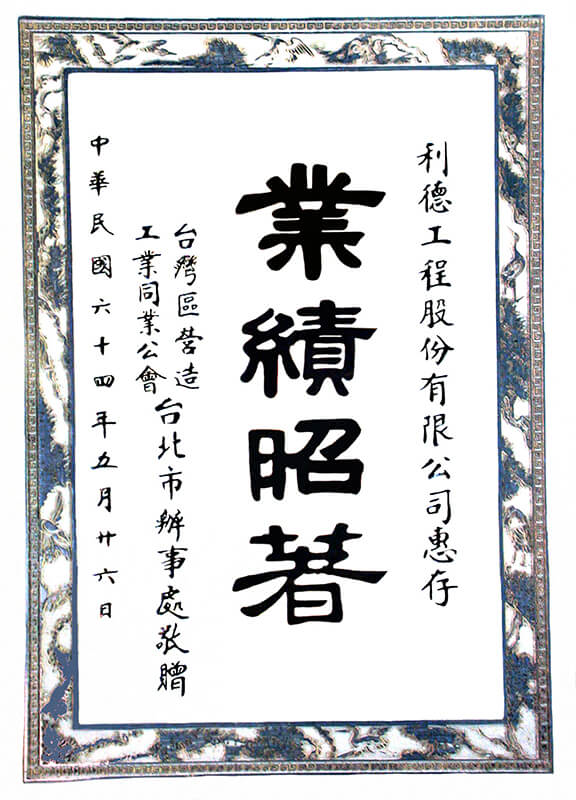 利德工程股份有限公司惠存
業績昭著
台灣區營造
工業同業公會
台北市辦事處敬贈
中華民國六十四年五月廿六日